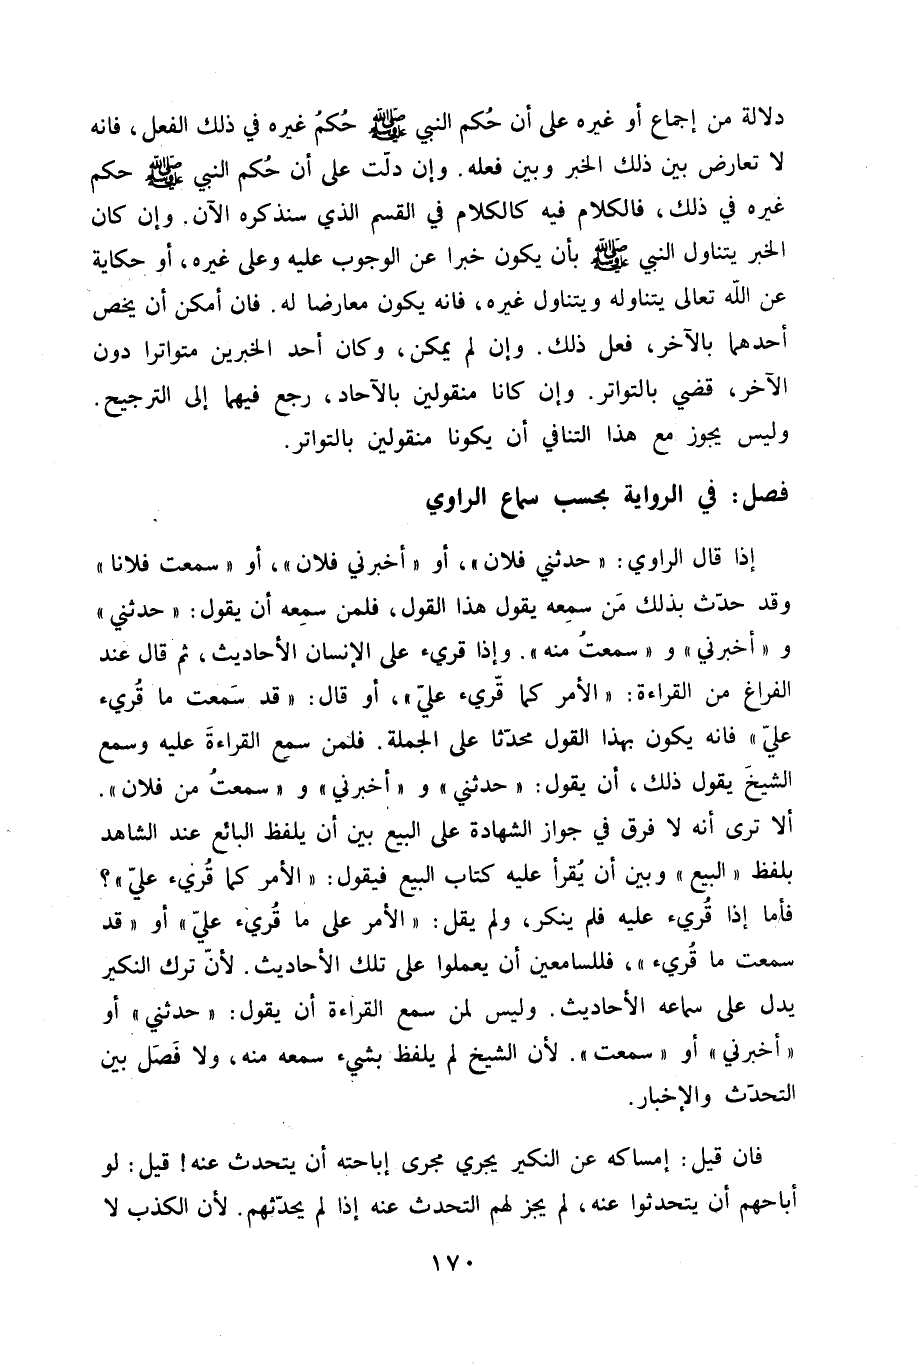 دلالة من إجماع أو غيره على أن حُكم النبي ﷺ حُكمُ غيره في ذلك الفعل، فانه
لا تعارض بين ذلك الخبر وبين فعله. وإن دلّت على أن حُكم النبي ﷺ حكم
غيره في ذلك، فالكلام فيه كالكلام في القسم الذي سنذكره الآن. وإن كان
الخبر يتناول النبي ﷺ بأن يكون خبرا عن الوجوب عليه وعلى غيره، أو حكاية
عن اللّه تعالى يتناوله ويتناول غيره، فانه يكون معارضا له. فان أمكن أن يخص
أحدهما بالآخر، فعل ذلك. وإن لم يمكن، وكان أحد الخبرين متواترا دون
الآخر، قضي بالتواتر. وإن كانا منقولين بالآحاد، رجع فيهما إلى الترجيح.
وليس يجوز مع هذا التنافي أن يكونا منقولين بالتواتر.
فصل: في الرواية بحسب سماع الراوي
إذا قال الراوي: « حدثني فلان»، أو « أخبرني فلان»، أو « سمعت فلانا »
وقد حدّث بذلك مَن سمِعه يقول هذا القول، فلمن سمعه أن يقول: « حدثني »
و « أخبرني » و « سمعتُ منه». وإذا قريء على الإنسان الأحاديث، ثم قال عند
الفراغ من القراءة: « الأمر كما قّريء عليّ»، أو قال: « قد سَمعت ما قُريء
عليّ » فانه يكون بهذا القول محدّثا على الجملة. فلمن سمع القراءةَ عليه وسمع
الشيخَ يقول ذلك، أن يقول: « حدثني » و « أخبرني » و « سمعتُ من فلان».
ألا ترى أنه لا فرق في جواز الشهادة على البيع بين أن يلفظ البائع عند الشاهد
بلفظ « البيع » وبين أن يُقرأ عليه كتاب البيع فيقول: « الأمر كما قُريء عليّ »؟
فأما إذا قُريء عليه فلم ينكر، ولم يقل: « الأمر على ما قُريء عليّ» أو « قد
سمعت ما قُريء »، فللسامعين أن يعملوا على تلك الأحاديث. لأنّ ترك النكير
يدل على سماعه الأحاديث. وليس لمن سمع القراءة أن يقول: « حدثني » أو
« أخبرني » أو « سمعت». لأن الشيخ لم يلفظ بشيء سمعه منه، ولا فَصَل بين
التحدّث والإخبار.
فان قيل: إمساكه عن النكير يجري مجرى إباحته أن يتحدث عنه! قيل: لو
أباحهم أن يتحدثوا عنه، لم يجز لهم التحدث عنه إذا لم يحدّثهم. لأن الكذب لا
١٧٠